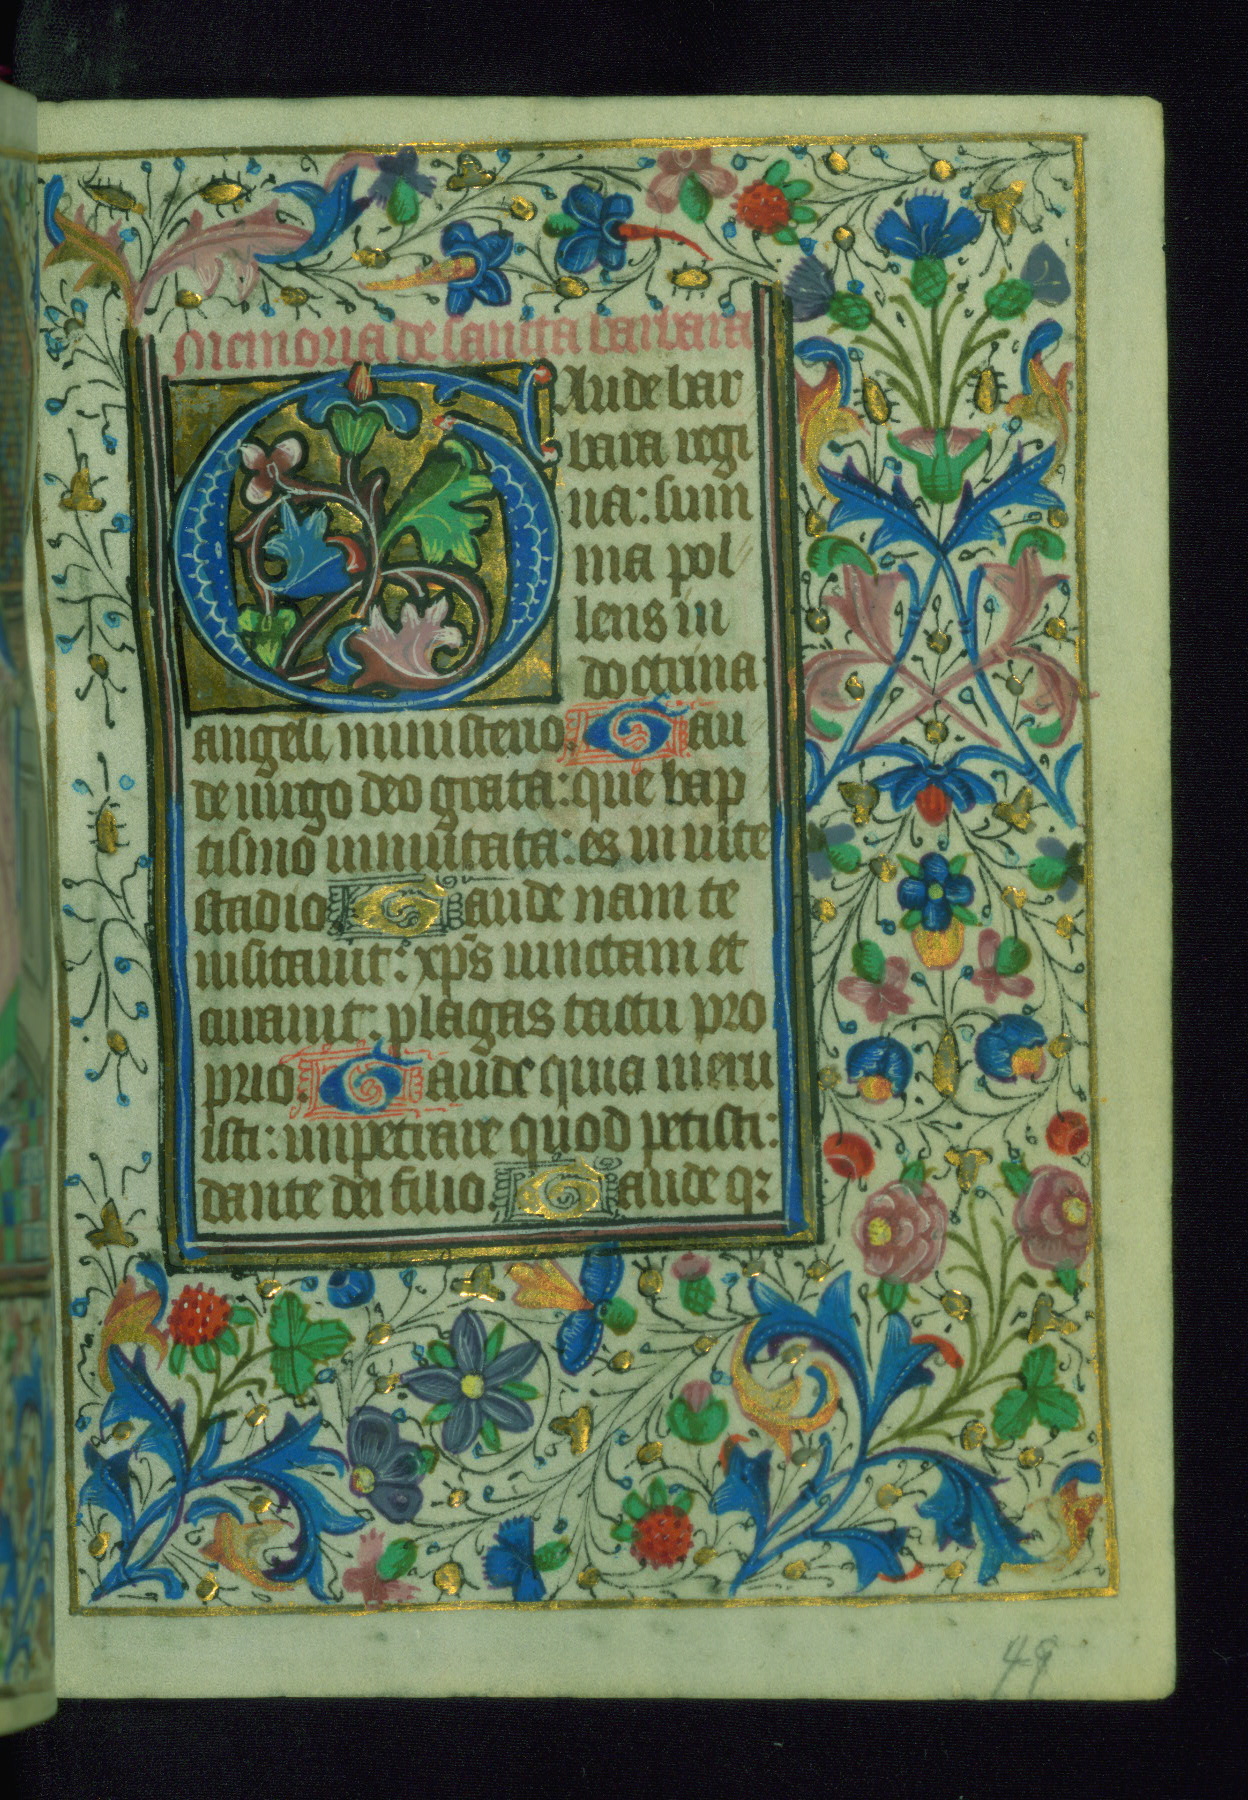 Memoria de sancta barbara
GAude bar
bara regi
na: sum
ma pol
lens in
doctrina
angeli ministerio. Gau
de uirgo deo grata: que bap
tismo inuitata: es in uite
stadio. Gaude nam te
uisitauit: xp̄s uinctam et
curauit: plagas tactu pro
prio. Gaude quia meru
isti: impetrare quod petisti:
dante dei filio. Gaude qz
49